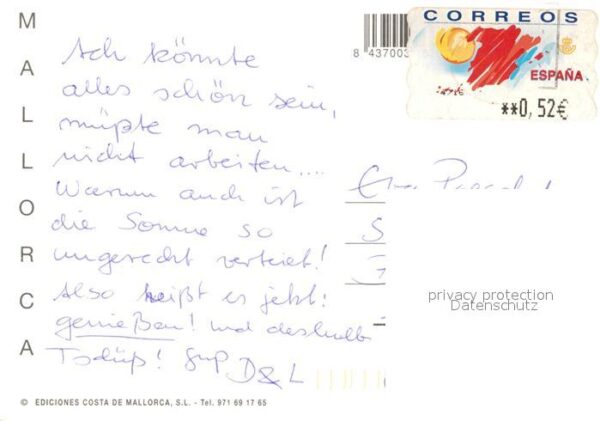 MALLORCA
Ach könnte
alles schön sein,
müßte man
nicht arbeiten....
Warum auch ist
die Sonne so
ungerecht verteilt!
Also heißt es jetzt:
genießen! und deshalb
Tschüß! D&L
CORREOS
ESPAÑA
**0,52€
8 437003
privacy protection
Datenschutz
© EDICIONES COSTA DE MALLORCA, S.L. - Tel. 971 69 17 65